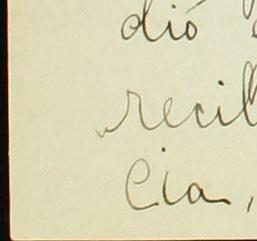 dió
recib
cia,